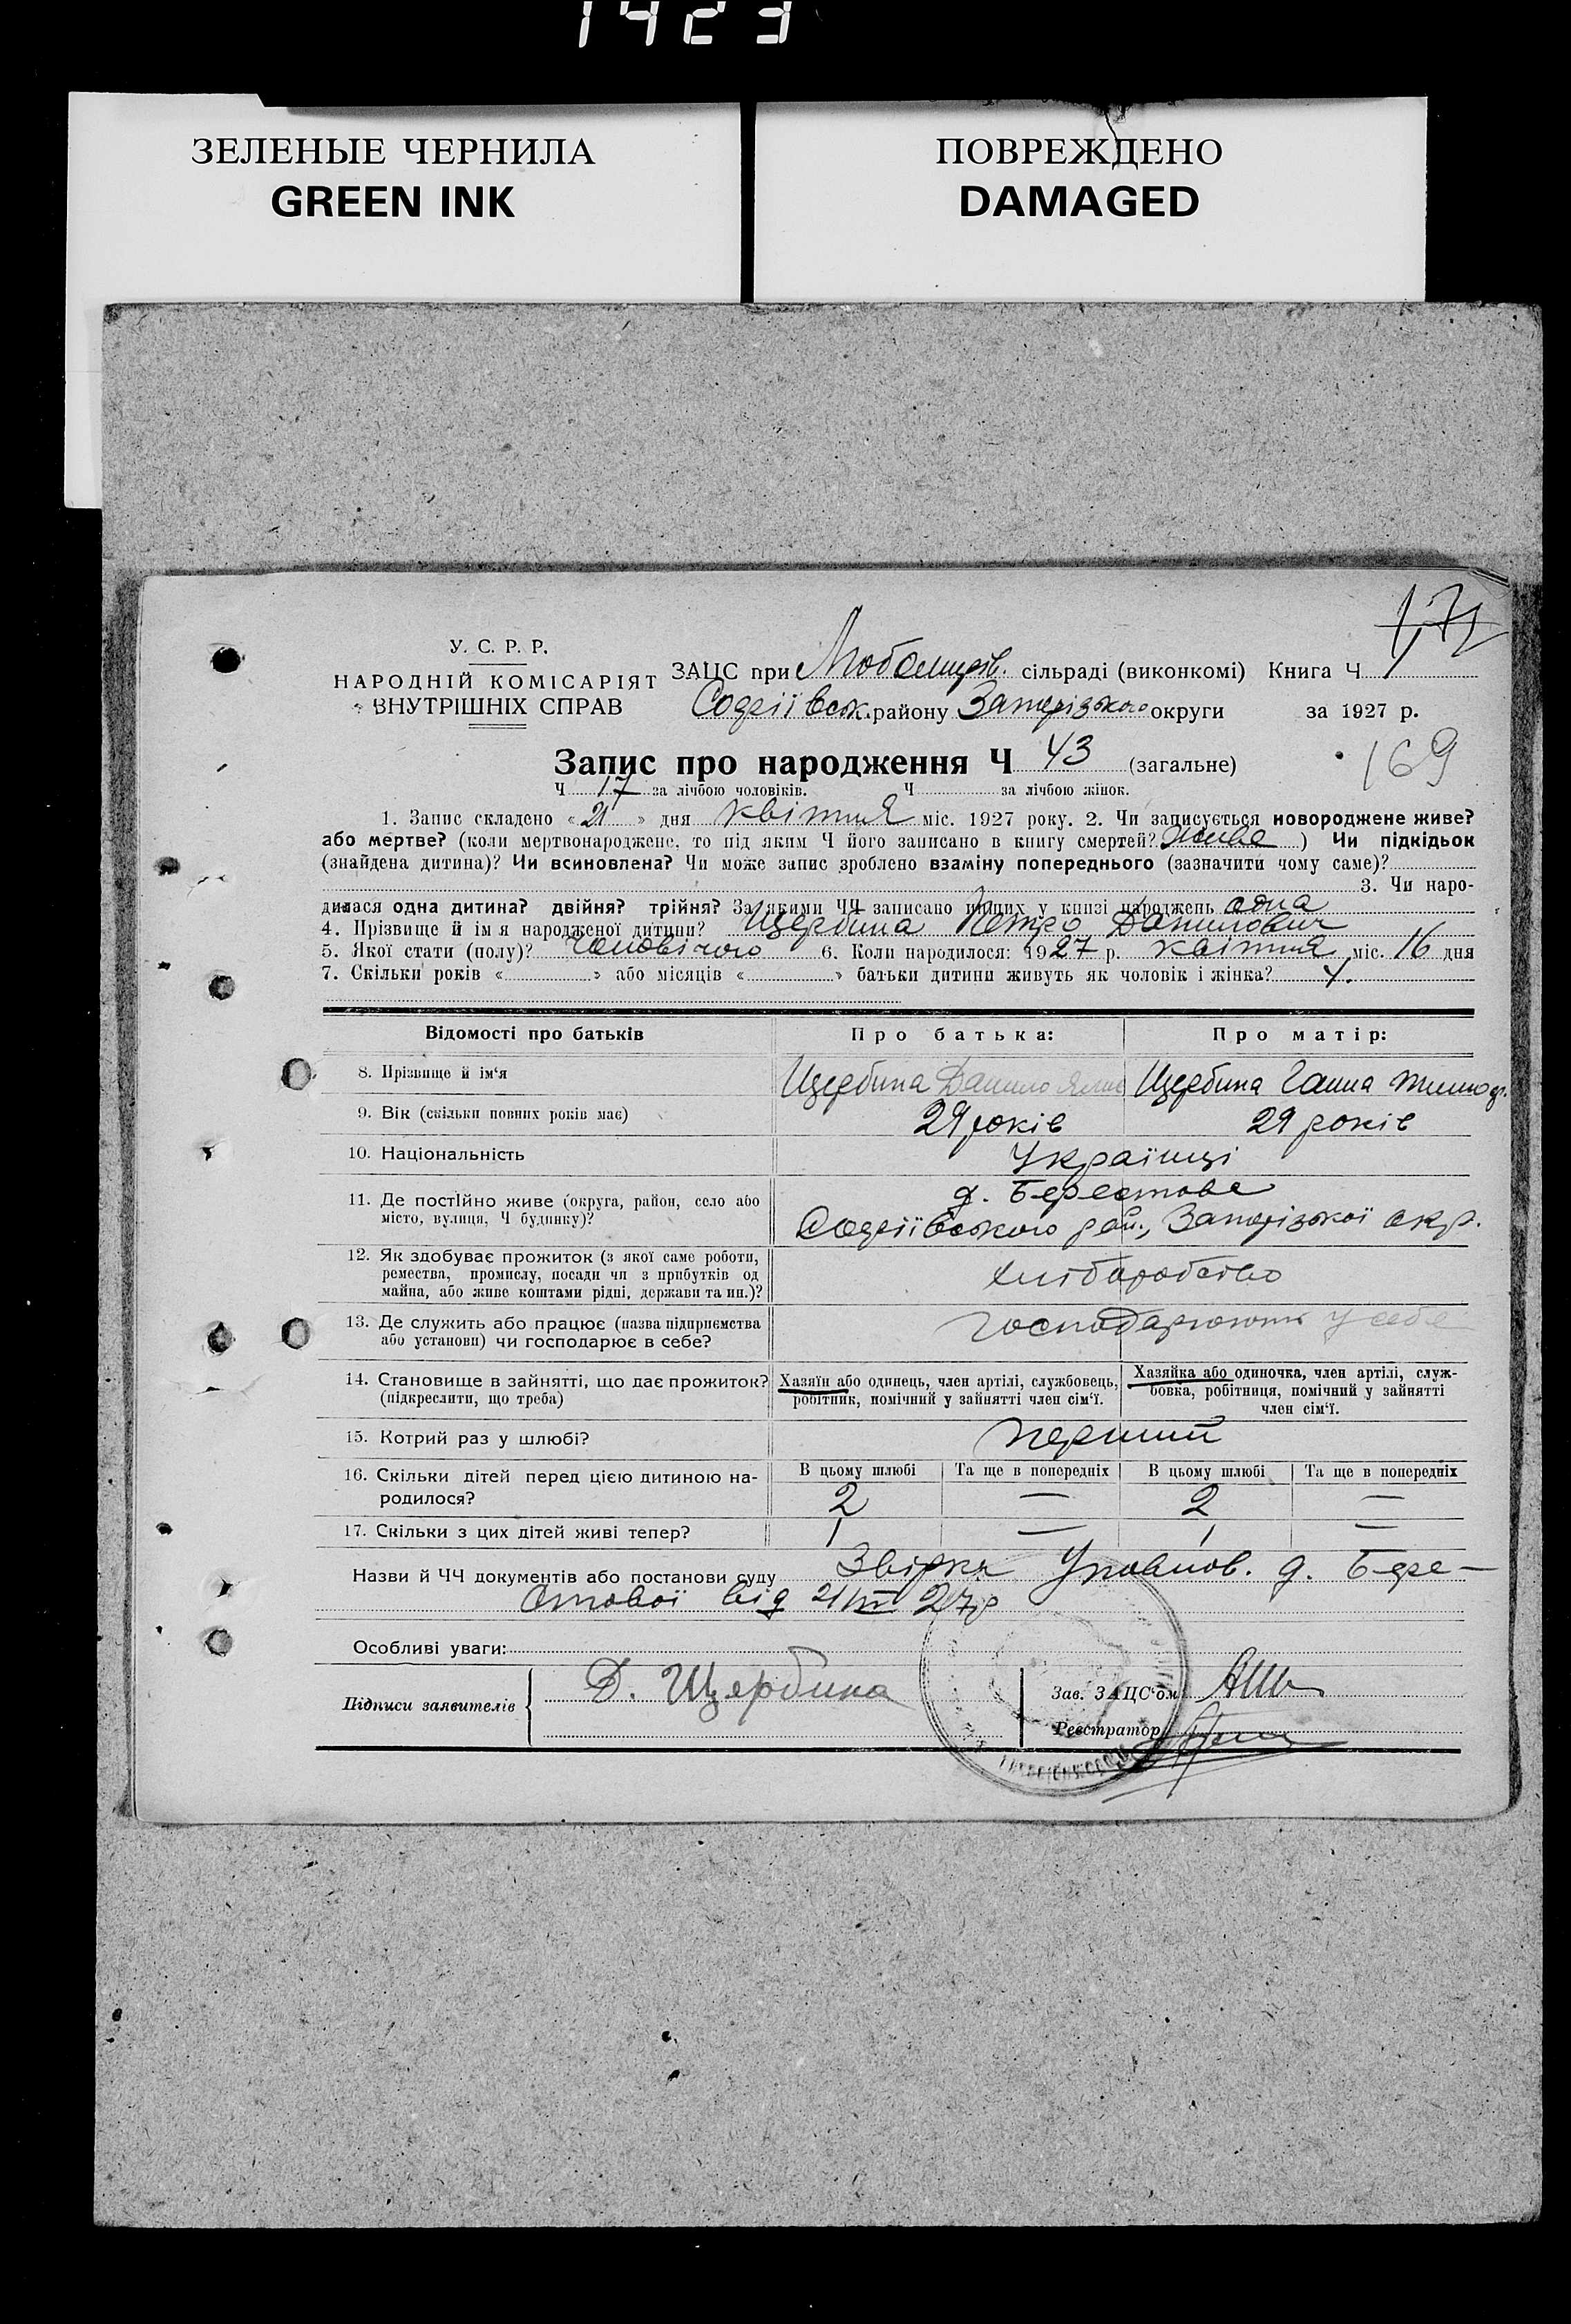 1423
ЗЕЛЕНЫЕ ЧЕРНИЛА
GREEN INK
ПОВРЕЖДЕНО
DAMAGED
171
У. С. Р. Р.
НАРОДНІЙ КОМІСАРІЯТ
ВНУТРІШНІХ СПРАВ
ЗАЦС при Любомирів. сільраді (виконкомі) Книга Ч
Софіївськ. району Запорізького округи за 1927 р.
169
Запис про народження Ч 43 (загальне)
Ч 17 за лічбою чоловіків. Ч за лічбою жінок.
1. Запис складено «21» дня квітня міс. 1927 року. 2. Чи записується новороджене живе?
або мертве? (коли мертвонароджене, то під яким Ч його записано в книгу смертей? живе ) Чи підкідьок
(знайдена дитина)? Чи всиновлена? Чи може запис зроблено взаміну попереднього (зазначити чому саме)?
3. Чи наро-
дилася одна дитина? двійня? трійня? За якими ЧЧ записано инших у книзі народжень одна
4. Прізвище й ім я народженої дитини? Щербина Петро Данилович
5. Якої стати (полу)? Чоловічого 6. Коли народилося: 1927 р. квітня міс. 16 дня
7. Скільки років « » або місяців « » батьки дитини живуть як чоловік і жінка?
Відомості про батьків Про батька: Про матір:
8. Прізвище й ім‘я Щербина Данило Щербина Ганна
9. Вік (скільки повних років має) 29 років 29 років
10. Національність Українці
11. Де постійно живе (округа, район, село або
місто, вулиця, Ч будинку)?
д. Берестове
Софіївського рай., Запорізької окр.
12. Як здобуває прожиток (з якої саме роботи,
ремества, промислу, посади чи з прибутків од
майна, або живе коштами рідні, держави та ин.)?
хліборобство
13. Де служить або працює (назва підприємства
або установи) чи господарює в себе?
господарюють у себе
14. Становище в зайнятті, що дає прожиток?
(підкреслити, що треба)
Хазяїн або одинець, член артілі, службовець,
робітник, помічний у зайнятті член сім‘ї.
Хазяйка або одиночка, член артілі, служ-
бовка, робітниця, помічний у зайнятті
член сім‘ї.
15. Котрий раз у шлюбі? перший
16. Скільки дітей перед цією дитиною на-
родилося?
В цьому шлюбі Та ще в попередніх В цьому шлюбі Та ще в попередніх
2 — 2 —
17. Скільки з цих дітей живі тепер? 1 — 1 —
Назви й ЧЧ документів або постанови суду Звірка Уповнов. д. Бере-
стової від 21/IV 27р
Особливі уваги:
Підписи заявителів Д. Щербина
Зав. ЗАЦС‘ом
Реєстратор